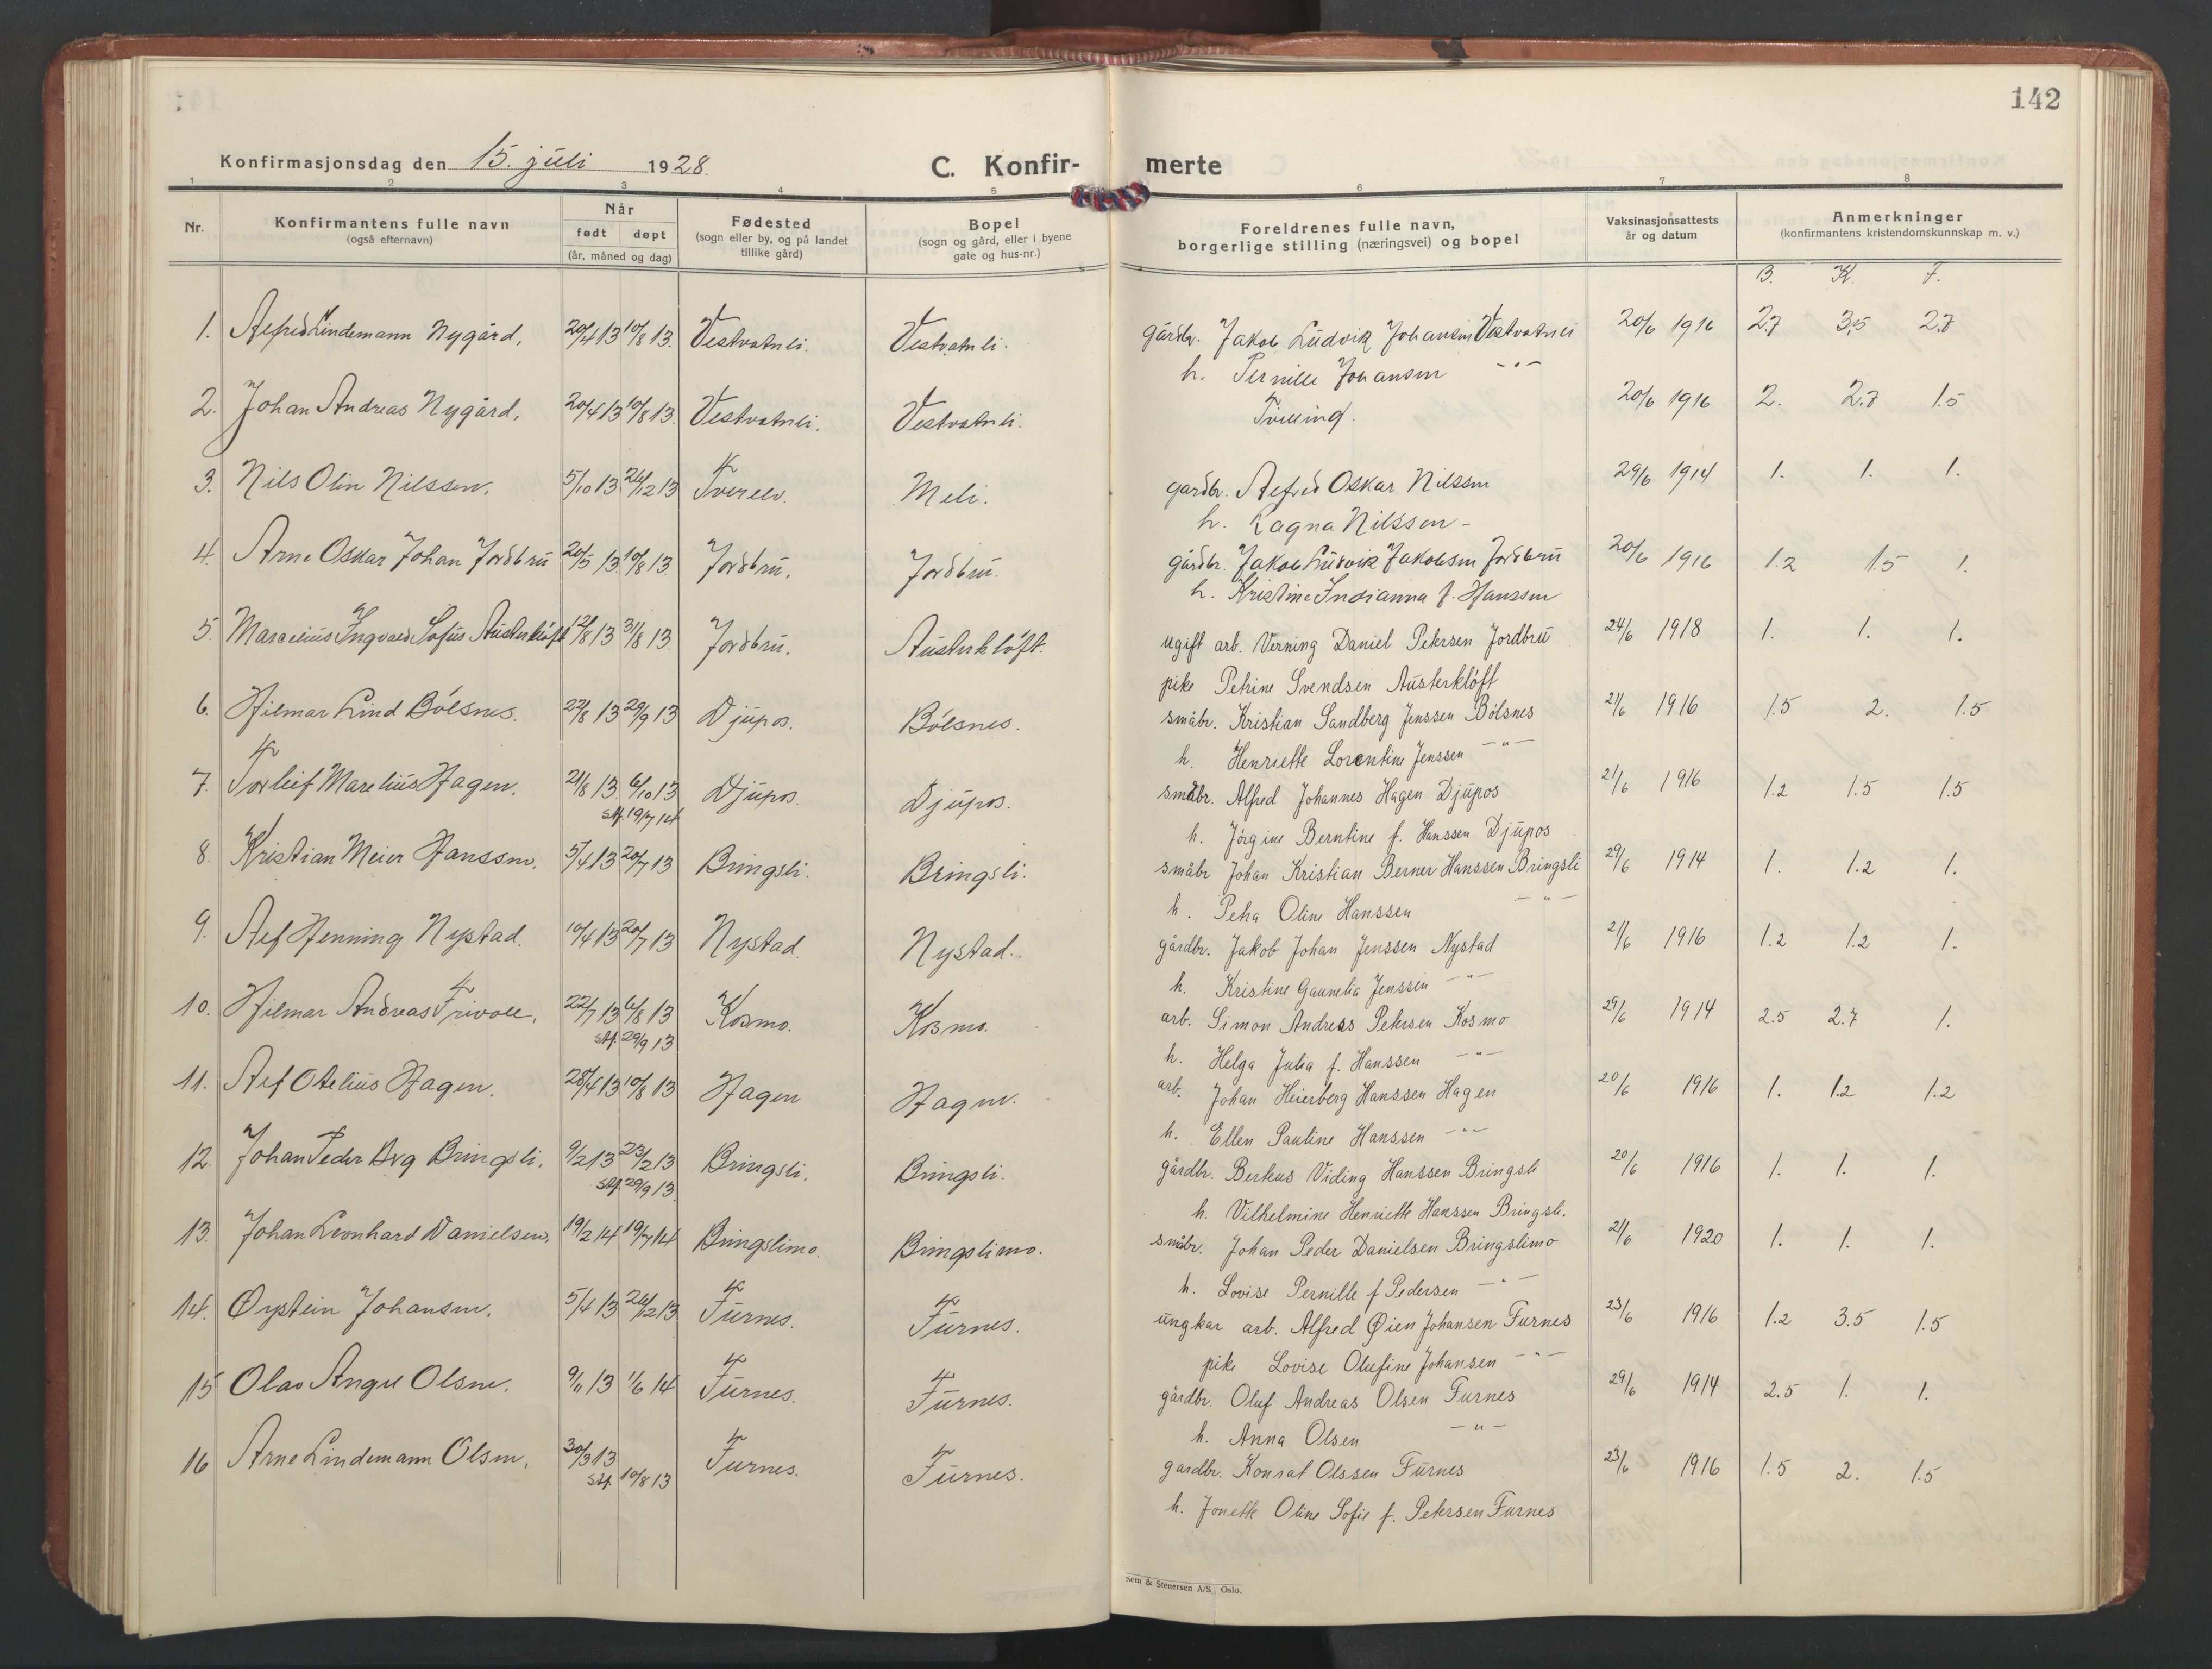 142
Konfirmasjonsdag den 15. juli 1928.
C. Konfir- merte
1 2 3 4 5 6 7 8
Nr. Konfirmantens fulle navn (også efternavn) Når født døpt (år, måned og dag) Fødested (sogn eller by, og på landet tillike gård) Bopel (sogn og gård, eller i byene gate og hus-nr.) Foreldrenes fulle navn, borgerlige stilling (næringsvei) og bopel Vaksinasjonsattests år og datum Anmerkninger (konfirmantens kristendomskunnskap m. v.)
B. K. F.
1. Alfred Lindemann Nygård. 20/4 13 10/8 13. Vestvatnli. Vestvatnli. gårdbr. Jakob Ludvik Johansen Vestvatnli 20/6 1916 2.7 3.5 2.7
h. Pernille Johansen -"-
2. Johan Andreas Nygård. 20/4 13 10/8 13. Vestvatnli. Vestvatnli. Tvilling. 20/6 1916 2. 2.7 1.5
3. Nils Olin Nilssen. 5/10 13 26/12 13 Tverelv. Meli. gardbr. Alfred Oskar Nilssen 29/6 1914 1. 1. 1.
h. Ragna Nilssen -
4. Arne Oskar Johan Jordbru 20/5 13. 10/8 13. Jordbru. Jordbru. gårdbr. Jakob Ludvik Jakobsen Jordbru 20/6 1916 1.2 1.5 1.
h. Kristine Indianna f. Hanssen
5. Marselius Ingvald Sofus Austerkløft 12/8 13 31/8 13. Jordbru. Austerkløft. ugift arb. Verning Daniel Petersen Jordbru 24/6 1918 1. 1. 1.
pike Petrine Svendsen Austerkløft
6. Hilmar Lind Bölsnes. 22/8 13 29/9 13 Djupos. Bölsnes. småbr. Kristian Sandberg Jenssen Bölsnes 21/6 1916 1.5 2. 1.5
h. Henriette Lorentine Jenssen -"-
7. Torleif Marelius Hagen. 21/8 13. 6/10 13 Djupos. Djupos. småbr. Alfred Johannes Hagen Djupos 21/6 1916 1.2 1.5 1.5
stf. 19/7 14
h. Jörgine Berntine f. Hanssen Djupos
8. Kristian Meier Hanssen. 5/4 13 20/7 13 Bringsli. Bringsli. småbr Johan Kristian Berner Hanssen Bringsli 29/6 1914 1. 1.2 1.
h. Petra Oline Hanssen -"-
9. Alf Henning Nystad. 10/4 13 20/7 13 Nystad. Nystad. gårdbr. Jakob Johan Jenssen Nystad 21/6 1916 1.2 1.2 1.
h. Kristine Gaunelia Jenssen -"-
10. Hilmar Andreas Trivoll. 22/7 13 6/8 13 Kosmo. Kosmo. arb. Simon Andreas Petersen Kosmo 29/6 1914 2.5 2.7 1.
stf. 29/9 13
h. Helga Julia f. Hanssen -"-
11. Alf Otelius Hagen. 28/4 13 10/8 13 Hagen Hagen. arb. Johan Heierberg Hanssen Hagen 20/6 1916 1. 1.2 1.2
h. Ellen Pauline Hanssen -"-
12. Johan Peder Brg Bringsli. 9/2 13 23/2 13 Bringsli. Bringsli. gårdbr. Berteus Viding Hanssen Bringsli 20/6 1916 1. 1. 1.
stf. 29/9 13.
h. Vilhelmine Henriette Hanssen Bringsli.
13. Johan Leonhard Danielsen. 19/2 14 19/7 14 Bringslimo. Bringslimo. småbr. Johan Peder Danielsen Bringslimo 21/6 1920 1. 1. 1.
h. Lovise Pernille f Pedersen -"-
14. Øystein Johansen. 5/4 13 26/12 13 Furnes. Furnes. ungkar arb. Alfred Øien Johansen Furnes 23/6 1916 1.2 3.5 1.5
pike Lovise Olufine Johansen -"-
15 Olav Angel Olsen. 9/11 13 1/6 14 Furnes. Furnes. gårdbr. Oluf Andreas Olsen Furnes 29/6 1914 2.5 1. 1.
h. Anna Olsen -"-
16 Arne Lindemann Olsen. 30/3 13 Furnes. Furnes. gardbr. Konrat Olssen Furnes 23/6 1916 1.5 2. 1.5
stf. 10/8 13
h. Jonette Oline Sofie f. Petersen Furnes
Sem & Stenersen A/S, Oslo.